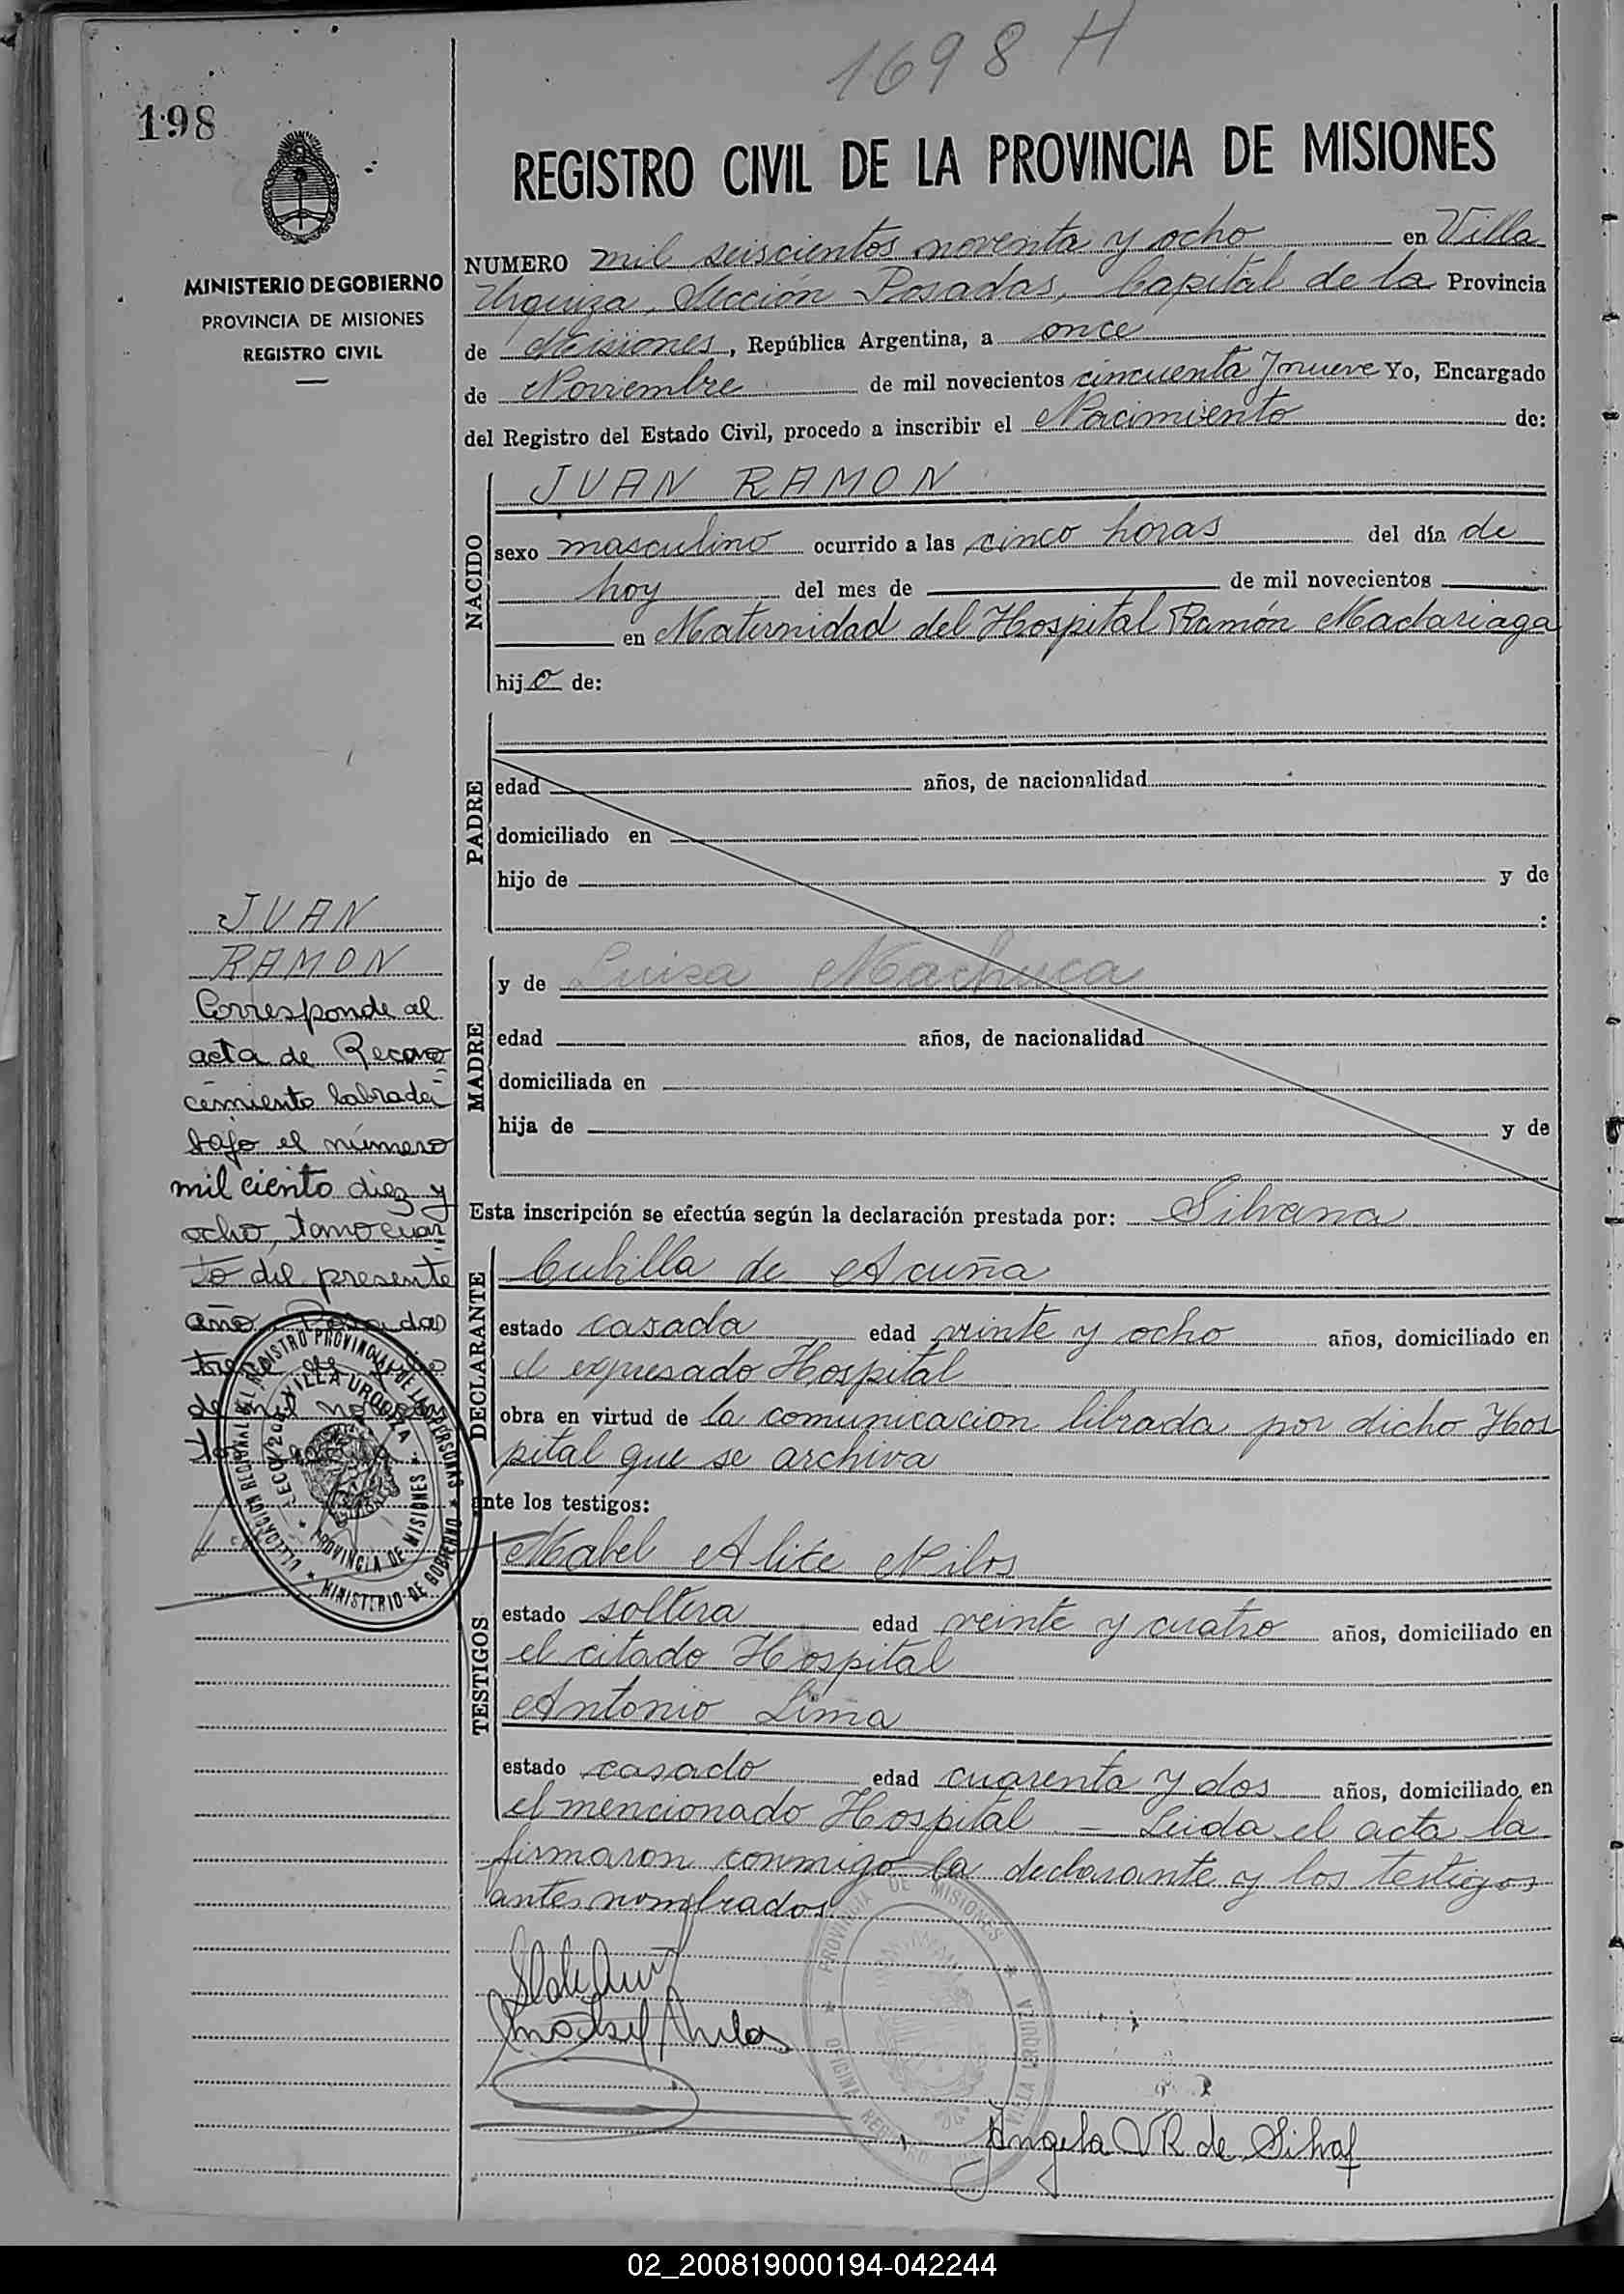 1698 H
198
REGISTRO CIVIL DE LA PROVINCIA DE MISIONES
MINISTERIO DE GOBIERNO
PROVINCIA DE MISIONES
REGISTRO CIVIL
NUMERO mil seiscientos noventa y ocho en Villa
Urquiza, Sección Posadas, Capital de la Provincia
de Misiones, República Argentina, a once
de Noviembre de mil novecientos cincuenta y nueve Yo, Encargado
del Registro del Estado Civil, procedo a inscribir el Nacimiento de:
NACIDO
JUAN RAMON
sexo masculino ocurrido a las cinco horas del día de
hoy del mes de de mil novecientos
en Maternidad del Hospital Ramón Madariaga
hijo de:
PADRE
edad años, de nacionalidad
domiciliado en
hijo de y de
:
MADRE
y de Luisa Machuca
edad años, de nacionalidad
domiciliada en
hija de y de
Esta inscripción se efectúa según la declaración prestada por: Silvana
DECLARANTE
Cubilla de Acuña
estado casada edad veinte y ocho años, domiciliado en
el expresado Hospital
obra en virtud de la comunicacion librada por dicho Hos
pital que se archiva
ante los testigos:
TESTIGOS
Mabel Alice
estado soltera edad veinte y cuatro años, domiciliado en
el citado Hospital
Antonio Lima
estado casado edad cuarenta y dos años, domiciliado en
el mencionado Hospital — Leida el acta la
firmaron conmigo la declarante y los testigos
antes nombrados
Angela VR de Silva
JUAN
RAMON
Corresponde al
acta de Recono
cimiento labrada
bajo el número
mil ciento diez y
ocho, tomo cuar
to del presente
año. Posadas
de mil
DELEGACION REGIONAL DEL REGISTRO PROVINCIAL DE LAS PERSONAS
VILLA URQUIZA
PROVINCIA DE MISIONES
MINISTERIO DE GOBIERNO
PROVINCIA DE MISIONES
VILLA URQUIZA
OFICINA
02_200819000194-042244